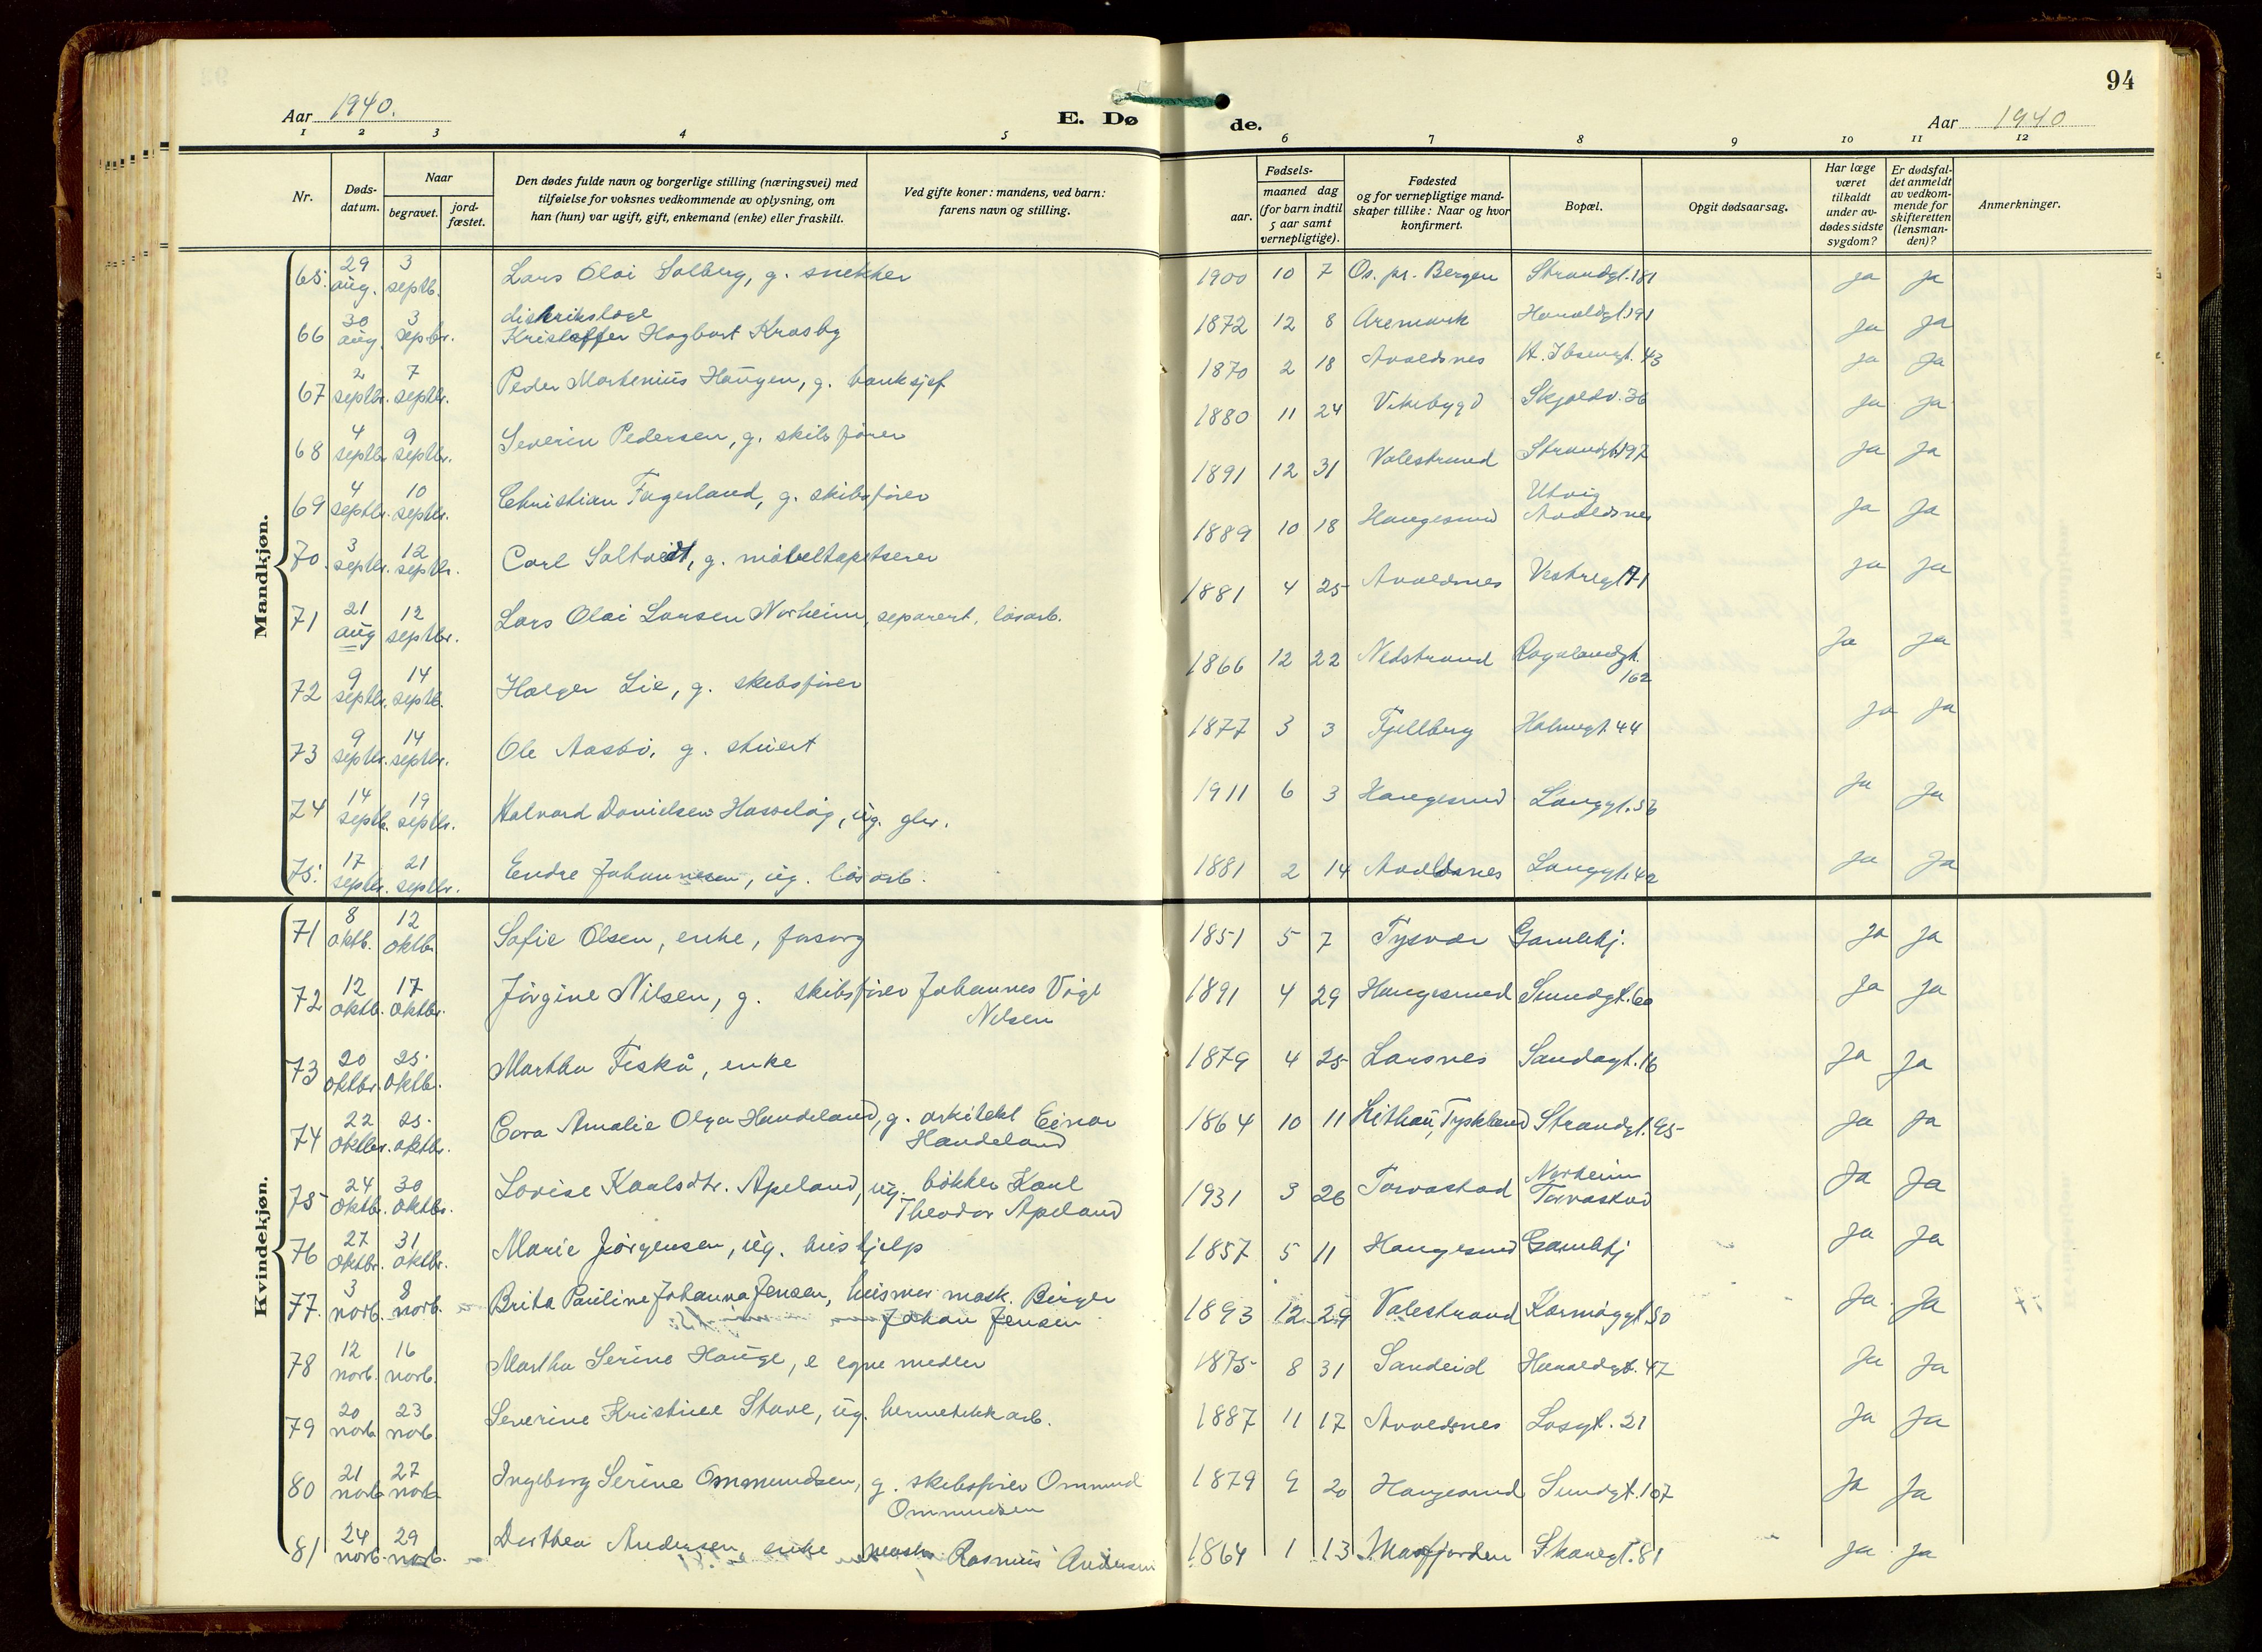 94
Aar 1940.
E. Dø de.
Aar 1940
1 2 3 4 5 6 7 8 9 10 11 12
Nr.
Døds-
datum.
Naar
begravet.
jord-
fæstet.
Den dødes fulde navn og borgerlige stilling (næringsvei) med
tilføielse for voksnes vedkommende av oplysning, om
han (hun) var ugift, gift, enkemand (enke) eller fraskilt.
Ved gifte koner: mandens, ved barn:
farens navn og stilling.
Fødsels-
aar.
maaned dag
(for barn indtil
5 aar samt
vernepligtige).
Fødested
og for vernepligtige mand-
skaper tillike: Naar og hvor
konfirmert.
Bopæl.
Opgit dødsaarsag.
Har læge
været
tilkaldt
under av-
dødes sidste
sygdom?
Er dødsfal-
det anmeldt
av vedkom-
mende for
skifteretten
(lensman-
den)?
Anmerkninger.
Mandkjøn.
65. 29 aug. 3 septb. Lars Olai Solberg, g. snekker 1900 10 7 Os. pr. Bergen Strandgt. 181 ja ja
66 30 aug. 3 septbr. distriktslæge
Kristoffer Hagbart Krosby 1872 12 8 Aremark Haraldgt. 191 ja ja
67 2 septbr. 7 septbr. Peder Martenius Haugen, g. banksjef 1870 2 18 Avaldsnes H. Ibsengt. 43 ja ja
68 4 septbr. 9 septbr. Severin Pedersen, g. skibsfører 1880 11 24 Vikebygd Skjoldv. 36 ja ja
69 4 septbr. 10 septbr. Christian Fagerland, g. skibsfører 1891 12 31 Valestrand Strandgt. 197 ja ja
70 3 septbr. 12 septbr. Carl Saltveidt, g. møbeltapetserer 1889 10 18 Haugesund Utvig
Avaldsnes ja ja
71 21 aug 12 septbr. Lars Olai Larsen Norheim, separert, løsarb. 1881 4 25 Avaldsnes Vestregt. 71 ja ja
72 9 septbr. 14 septb. Holger Lie, g. skibsfører 1866 12 22 Nedstrand Rogalandgt.
162 Ja ja
73 9 septbr. 14 septbr. Ole Aasbø, g. stuert 1877 3 3 Fjellberg Holmegt. 44 ja ja
74 14 septb. 19 septbr. Halvard Danielsen Hasseløy, ug. 1911 6 3 Haugesund Langgt. 56 ja ja
75. 17 septbr. 21 septbr. Endre Johannesen, ug. løsarb. 1881 2 14 Avaldsnes Langgt. 42 ja ja
Kvindekjøn.
71 8 oktb. 12 oktbr. Sofie Olsen, enke, forsorg 1851 5 7 Tysvær Gamlehj. ja ja
72 12 oktb. 17 oktbr. Jørgine Nilsen, g. skibsfører Johannes Vigt
Nilsen 1891 4 29 Haugesund Sundgt. 60 ja ja
73 20 oktbr. 25. oktbr. Martha Fiskå, enke 1879 4 25 Larsnes Sandagt. 16 ja ja
74 22 oktbr. 25. oktbr. Cora Amalie Olga Handeland, g. arkitekt Einar
Handeland 1864 10 11 Lithau, Tyskland Strandgt. 95 ja ja
75 24 oktb. 30 oktbr. Lovise Karlsdtr. Apeland, ug. bøkker Karl
Theodor Apeland 1931 3 26 Torvastad Norheim
Torvastad Ja Ja
76 27 oktbr. 31 oktbr. Marie Jørgensen, ug. hushjelp 1857 5 11 Haugesund Gamlehj ja ja
77. 3 novb. 8 novb. Brita Pauline Johanna Jensen, husmor mask. Birger
Johan Jensen 1893 12 29 Valestrand Karmøygt. 50 Ja Ja
78 12 novb. 16 novb. Martha Serine Hauge, e egne midler 1875 8 31 Sandeid Haraldgt. 47 ja ja
79 20 novb 23 novb. Severine Kristine Stave, ug. hermetikkarb. 1887 11 17 Avaldsnes Losgt. 21 Ja Ja
80 21 novb 27 novb Ingeborg Serine Ommundsen, g. skibsfører Ommund
Ommundsen 1879 9 20 Haugesund Sundgt. 107 Ja Ja
81 24 novb. 29 novb. Dorthea Andersen, enke Rasmus Andersen 1864 1 13 Masfjorden Skaregt. 81 ja ja